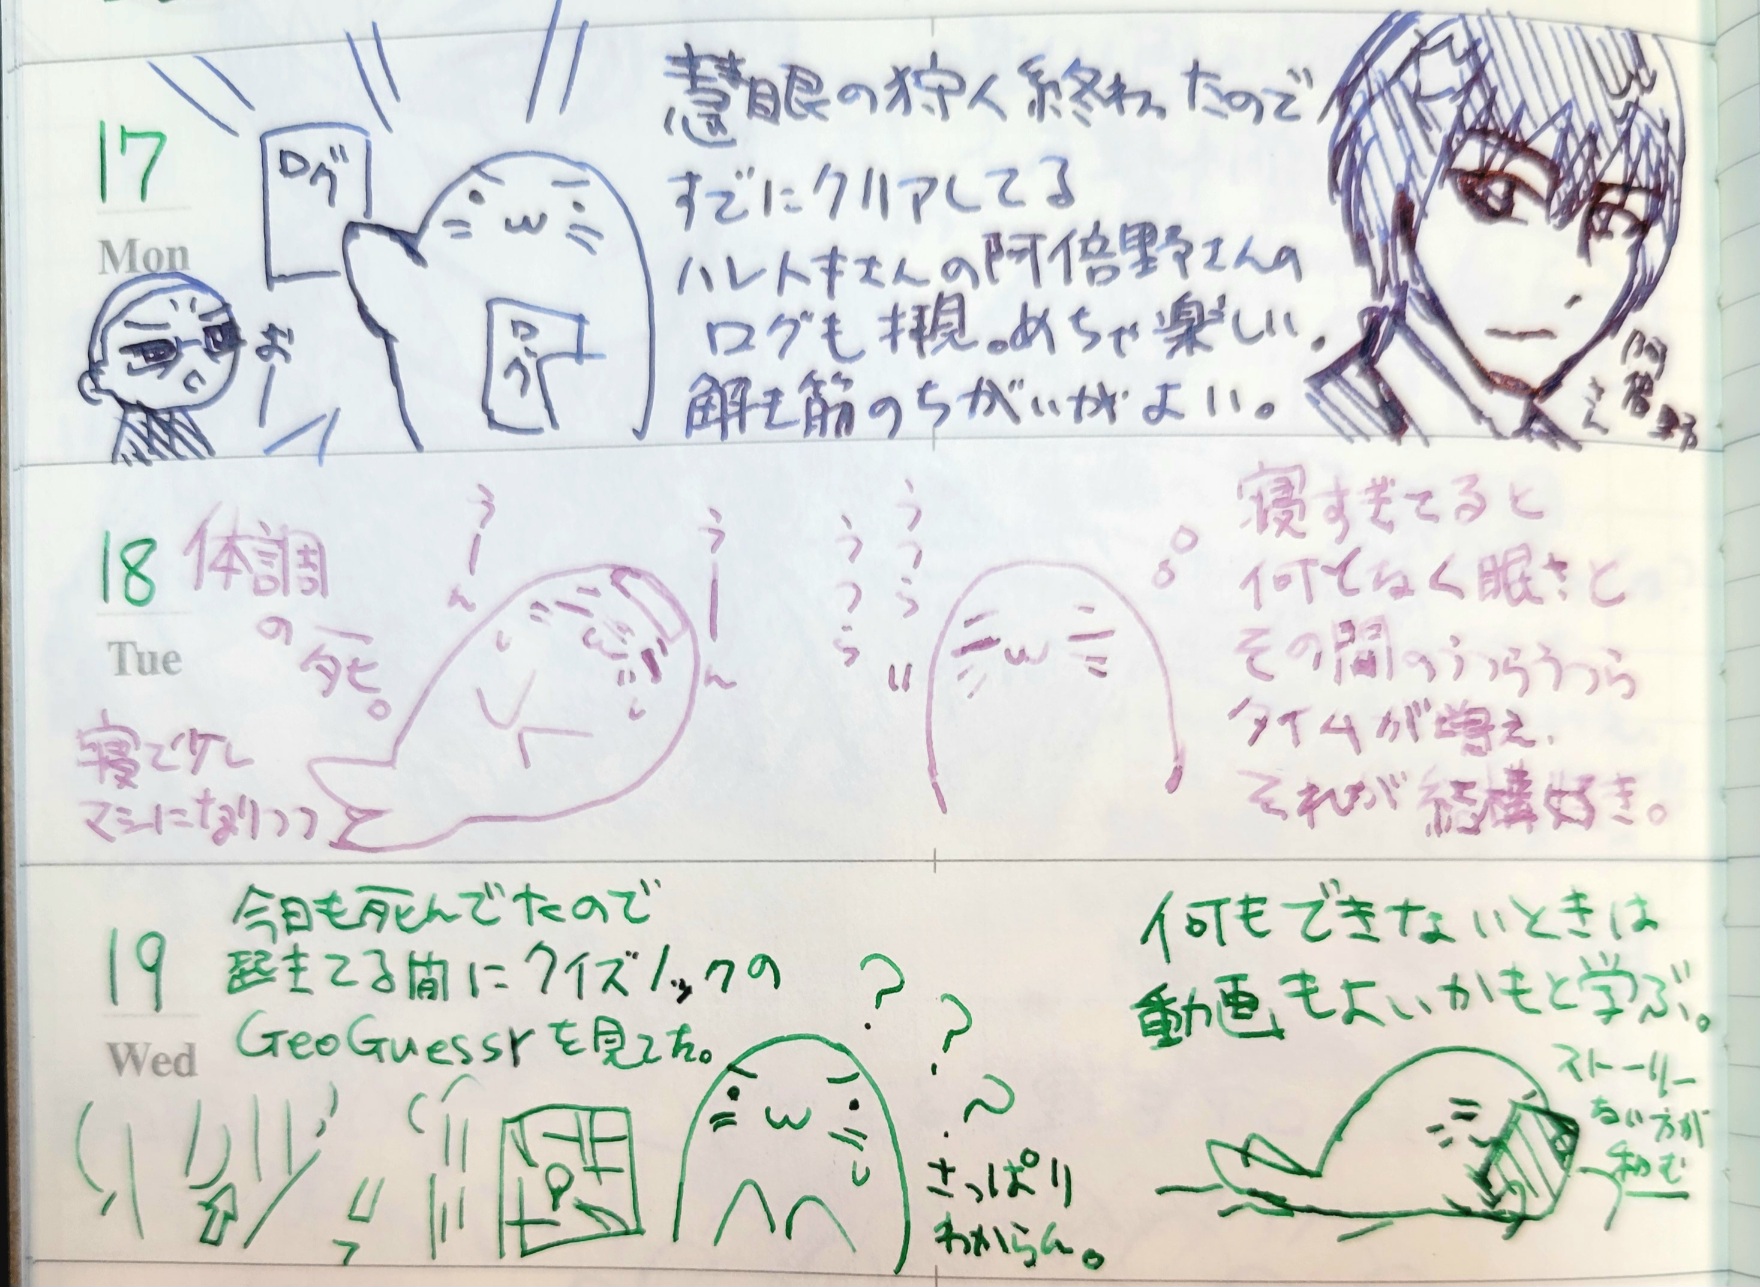 17
Mon
ログ
ログ
お
慧眼の狩人終わったので
すでにクリアしてる
ハレトキさんの阿倍野さんの
ログも拝見。めちゃ楽しい。
解き筋のちがいがよい。
阿倍野
さん
18
Tue
体調
の
死。
寝て少し
マシになりつつ
うーん
うーん
うつら
うつら
寝すぎてると
何でなく眠さと
その間のうつらうつら
タイムが増え、
それが結構好き。
19
Wed
今日も死んでたので
起きてる間にクイズノックの
GeoGuessrを見てた。
?
?
?
さっぱり
わからん。
何もできないときは
動画もよいかもと学ぶ。
ストーリー
ない方が
和む